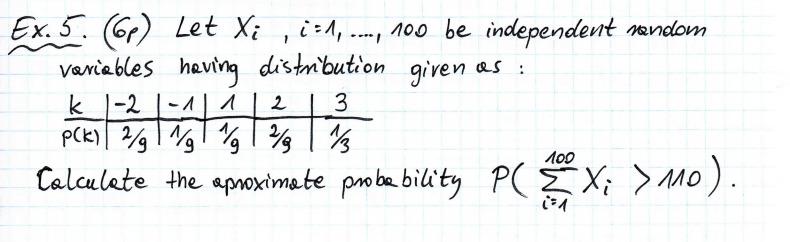 Ex. 5. (6p) Let Xi , i=1, ...., 100 be independent random
variables having distribution given as :
k | -2 | -1 | 1 | 2 | 3
p(k) | 2/9 | 1/9 | 1/9 | 2/9 | 1/3
Calculate the aproximate probability P( ∑_{i=1}^{100} Xi > 110 ) .